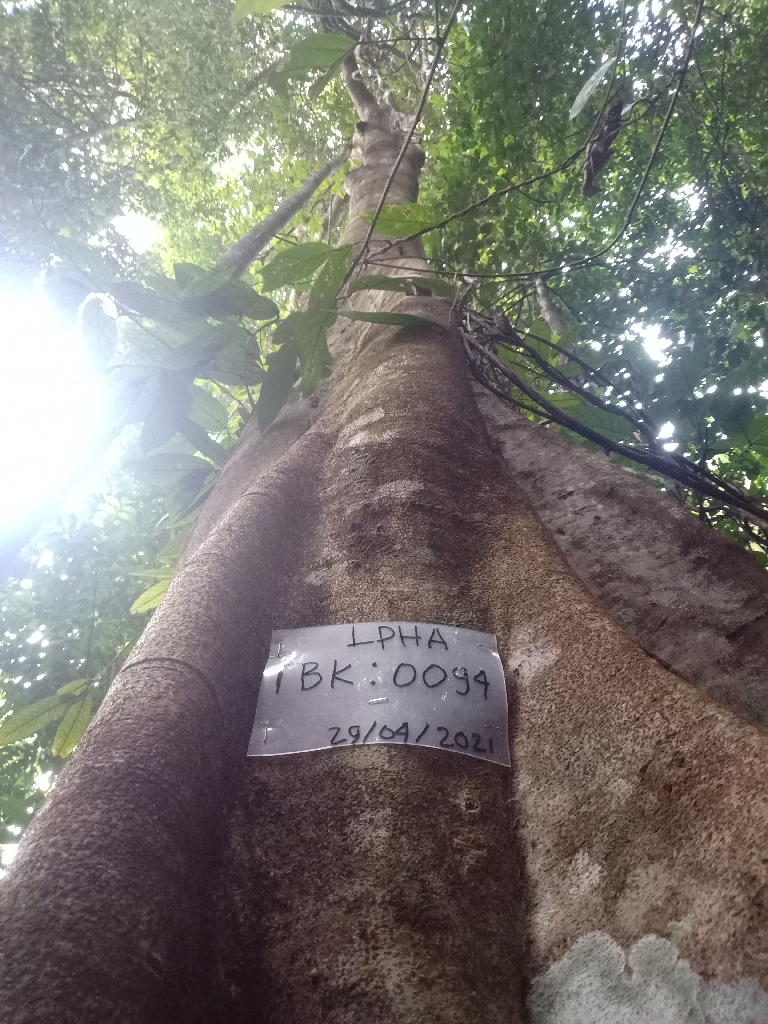 LPHA
BK: 0094
29/04/2021